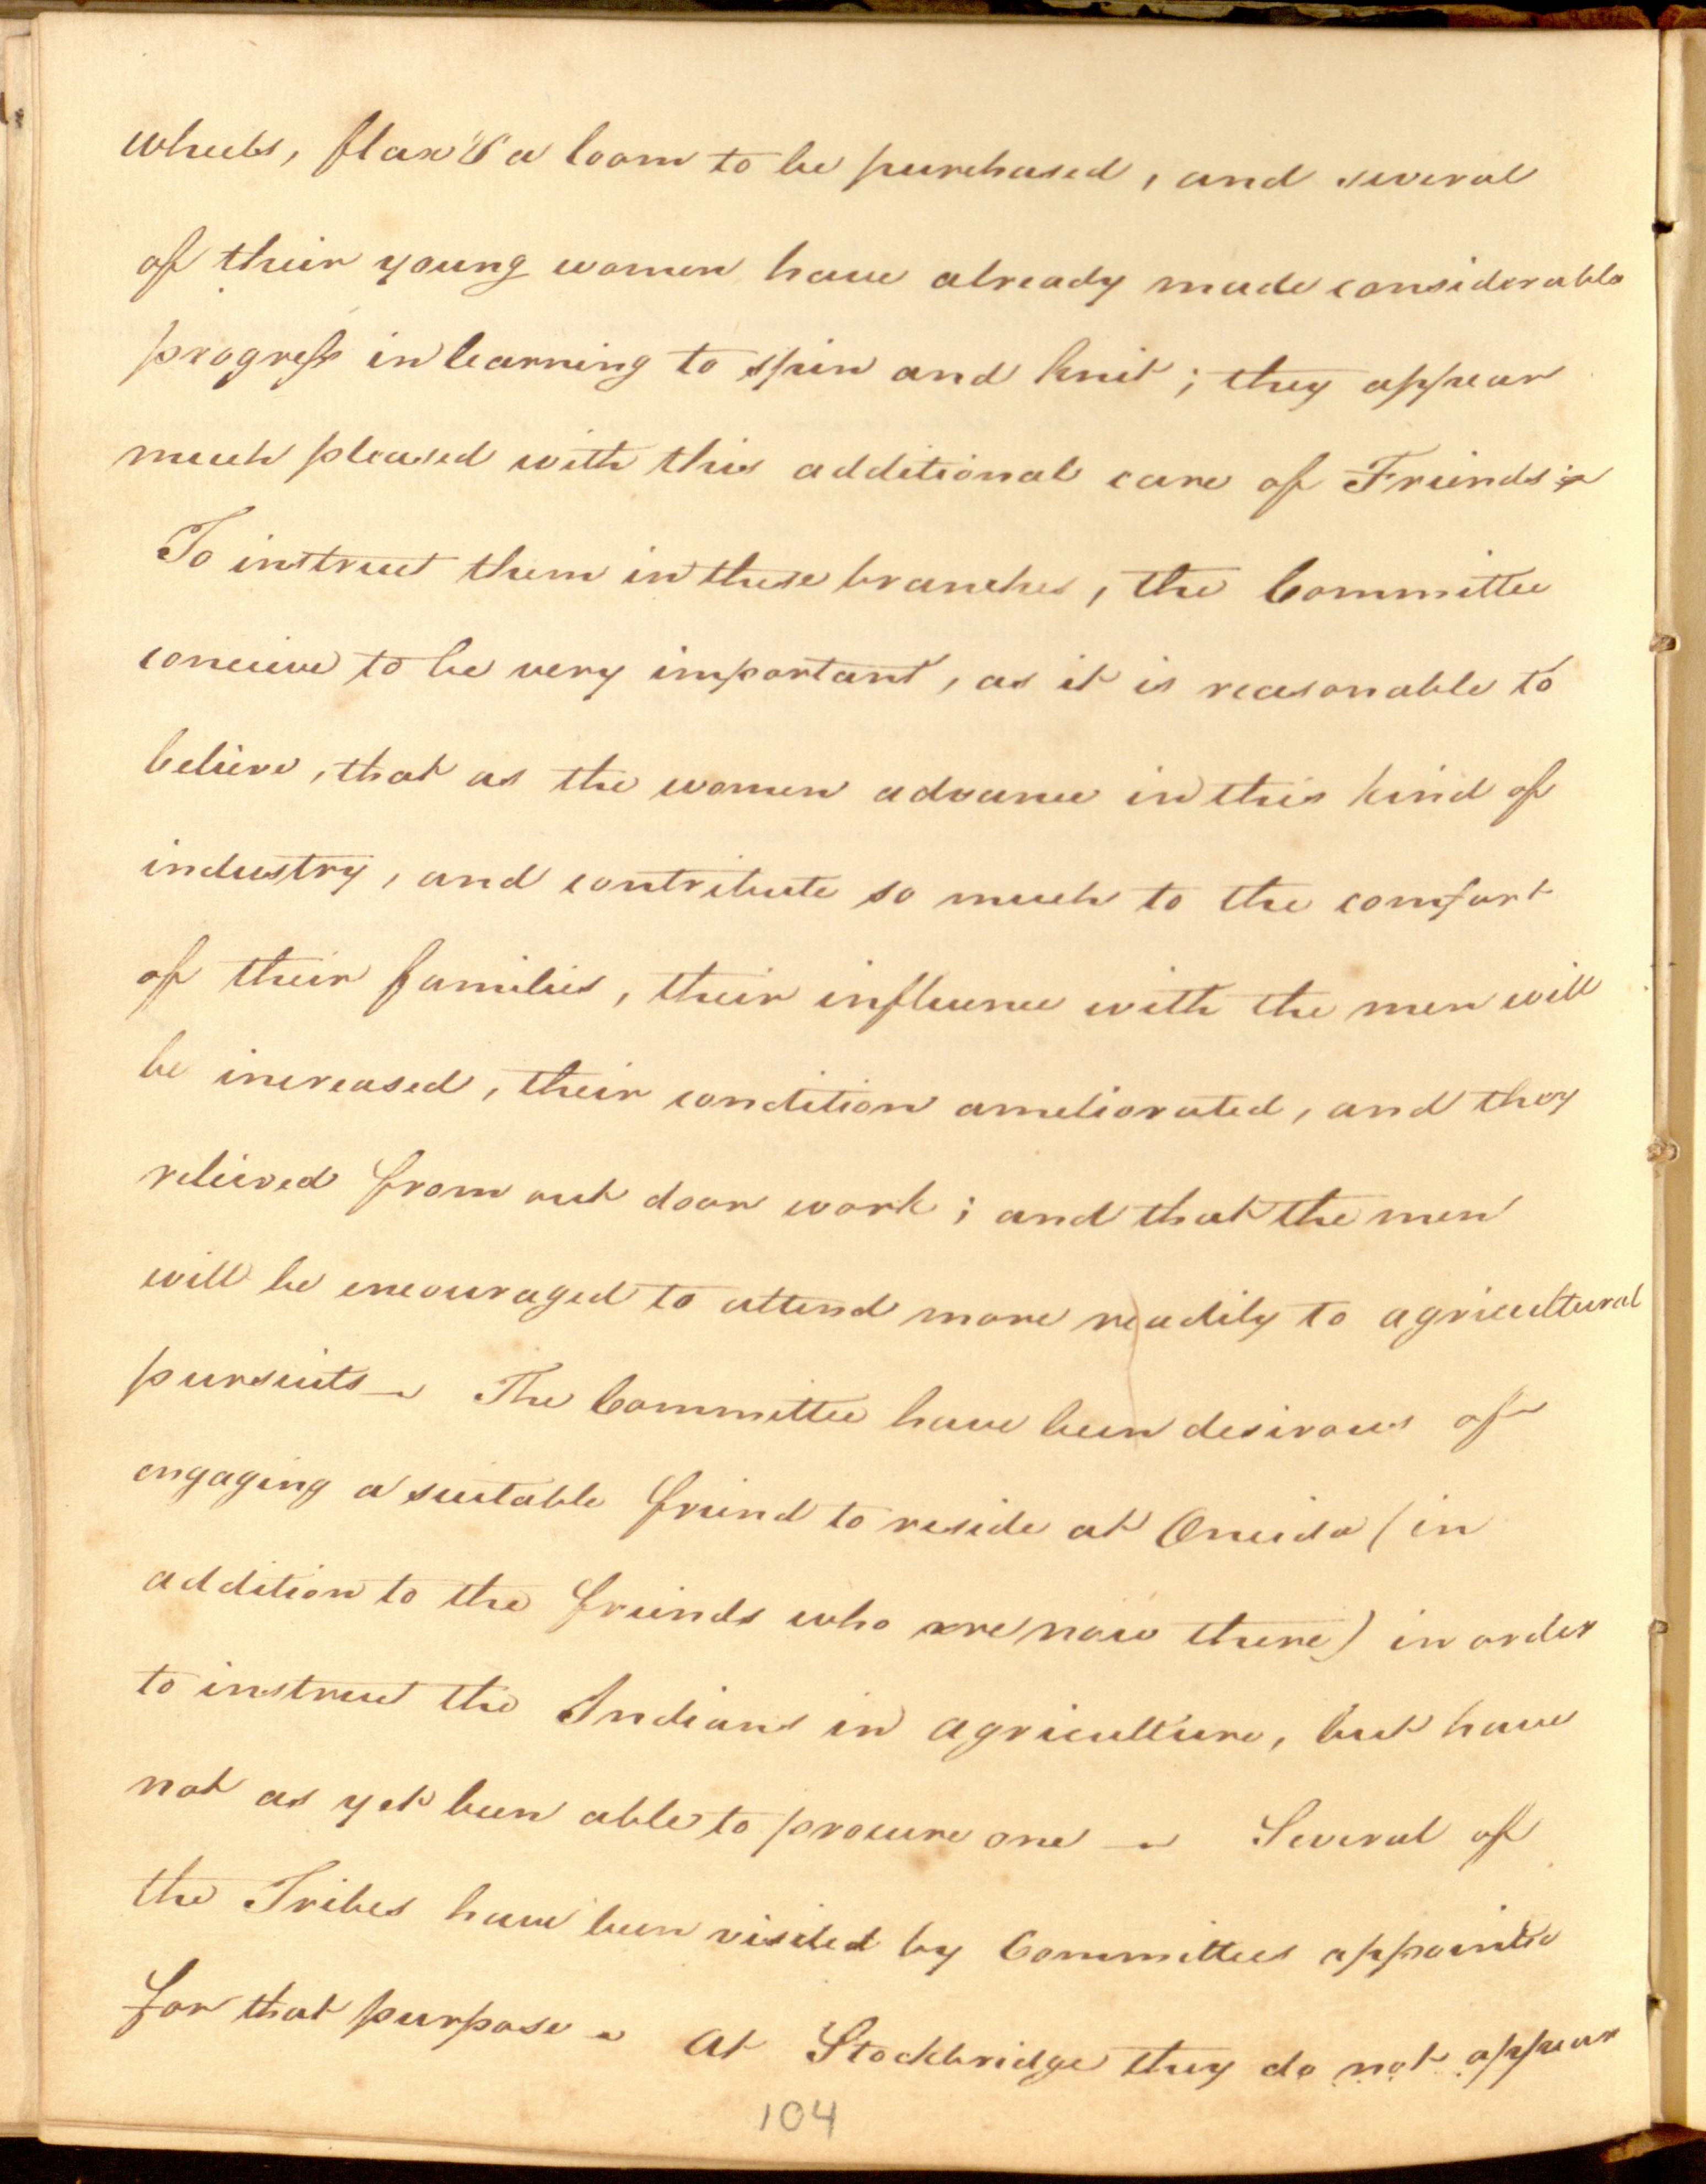 wheels, flax & a loom to be purchased, and several
of their young women have already made considerable
progress in learning to spin and knit; they appear
much pleased with this additional care of Friends;
To instruct them in these branches, the Committee
conceive to be very important, as it is reasonable to
believe, that as the women advance in this kind of
industry, and contribute so much to the comfort
of their families, their influence with the men will
be increased, their condition ameliorated, and they
relieved from out door work; and that the men
will be encouraged to attend more readily to agricultural
pursuits – The Committee have been desirous of
engaging a suitable friend to reside at Oneida (in
addition to the friends who are now there) in order
to instruct the Indians in agriculture, but have
not as yet been able to procure one – Several of
the Tribes have been visited by Committees appointed
for that purpose – At Stockbridge they do not appear
104